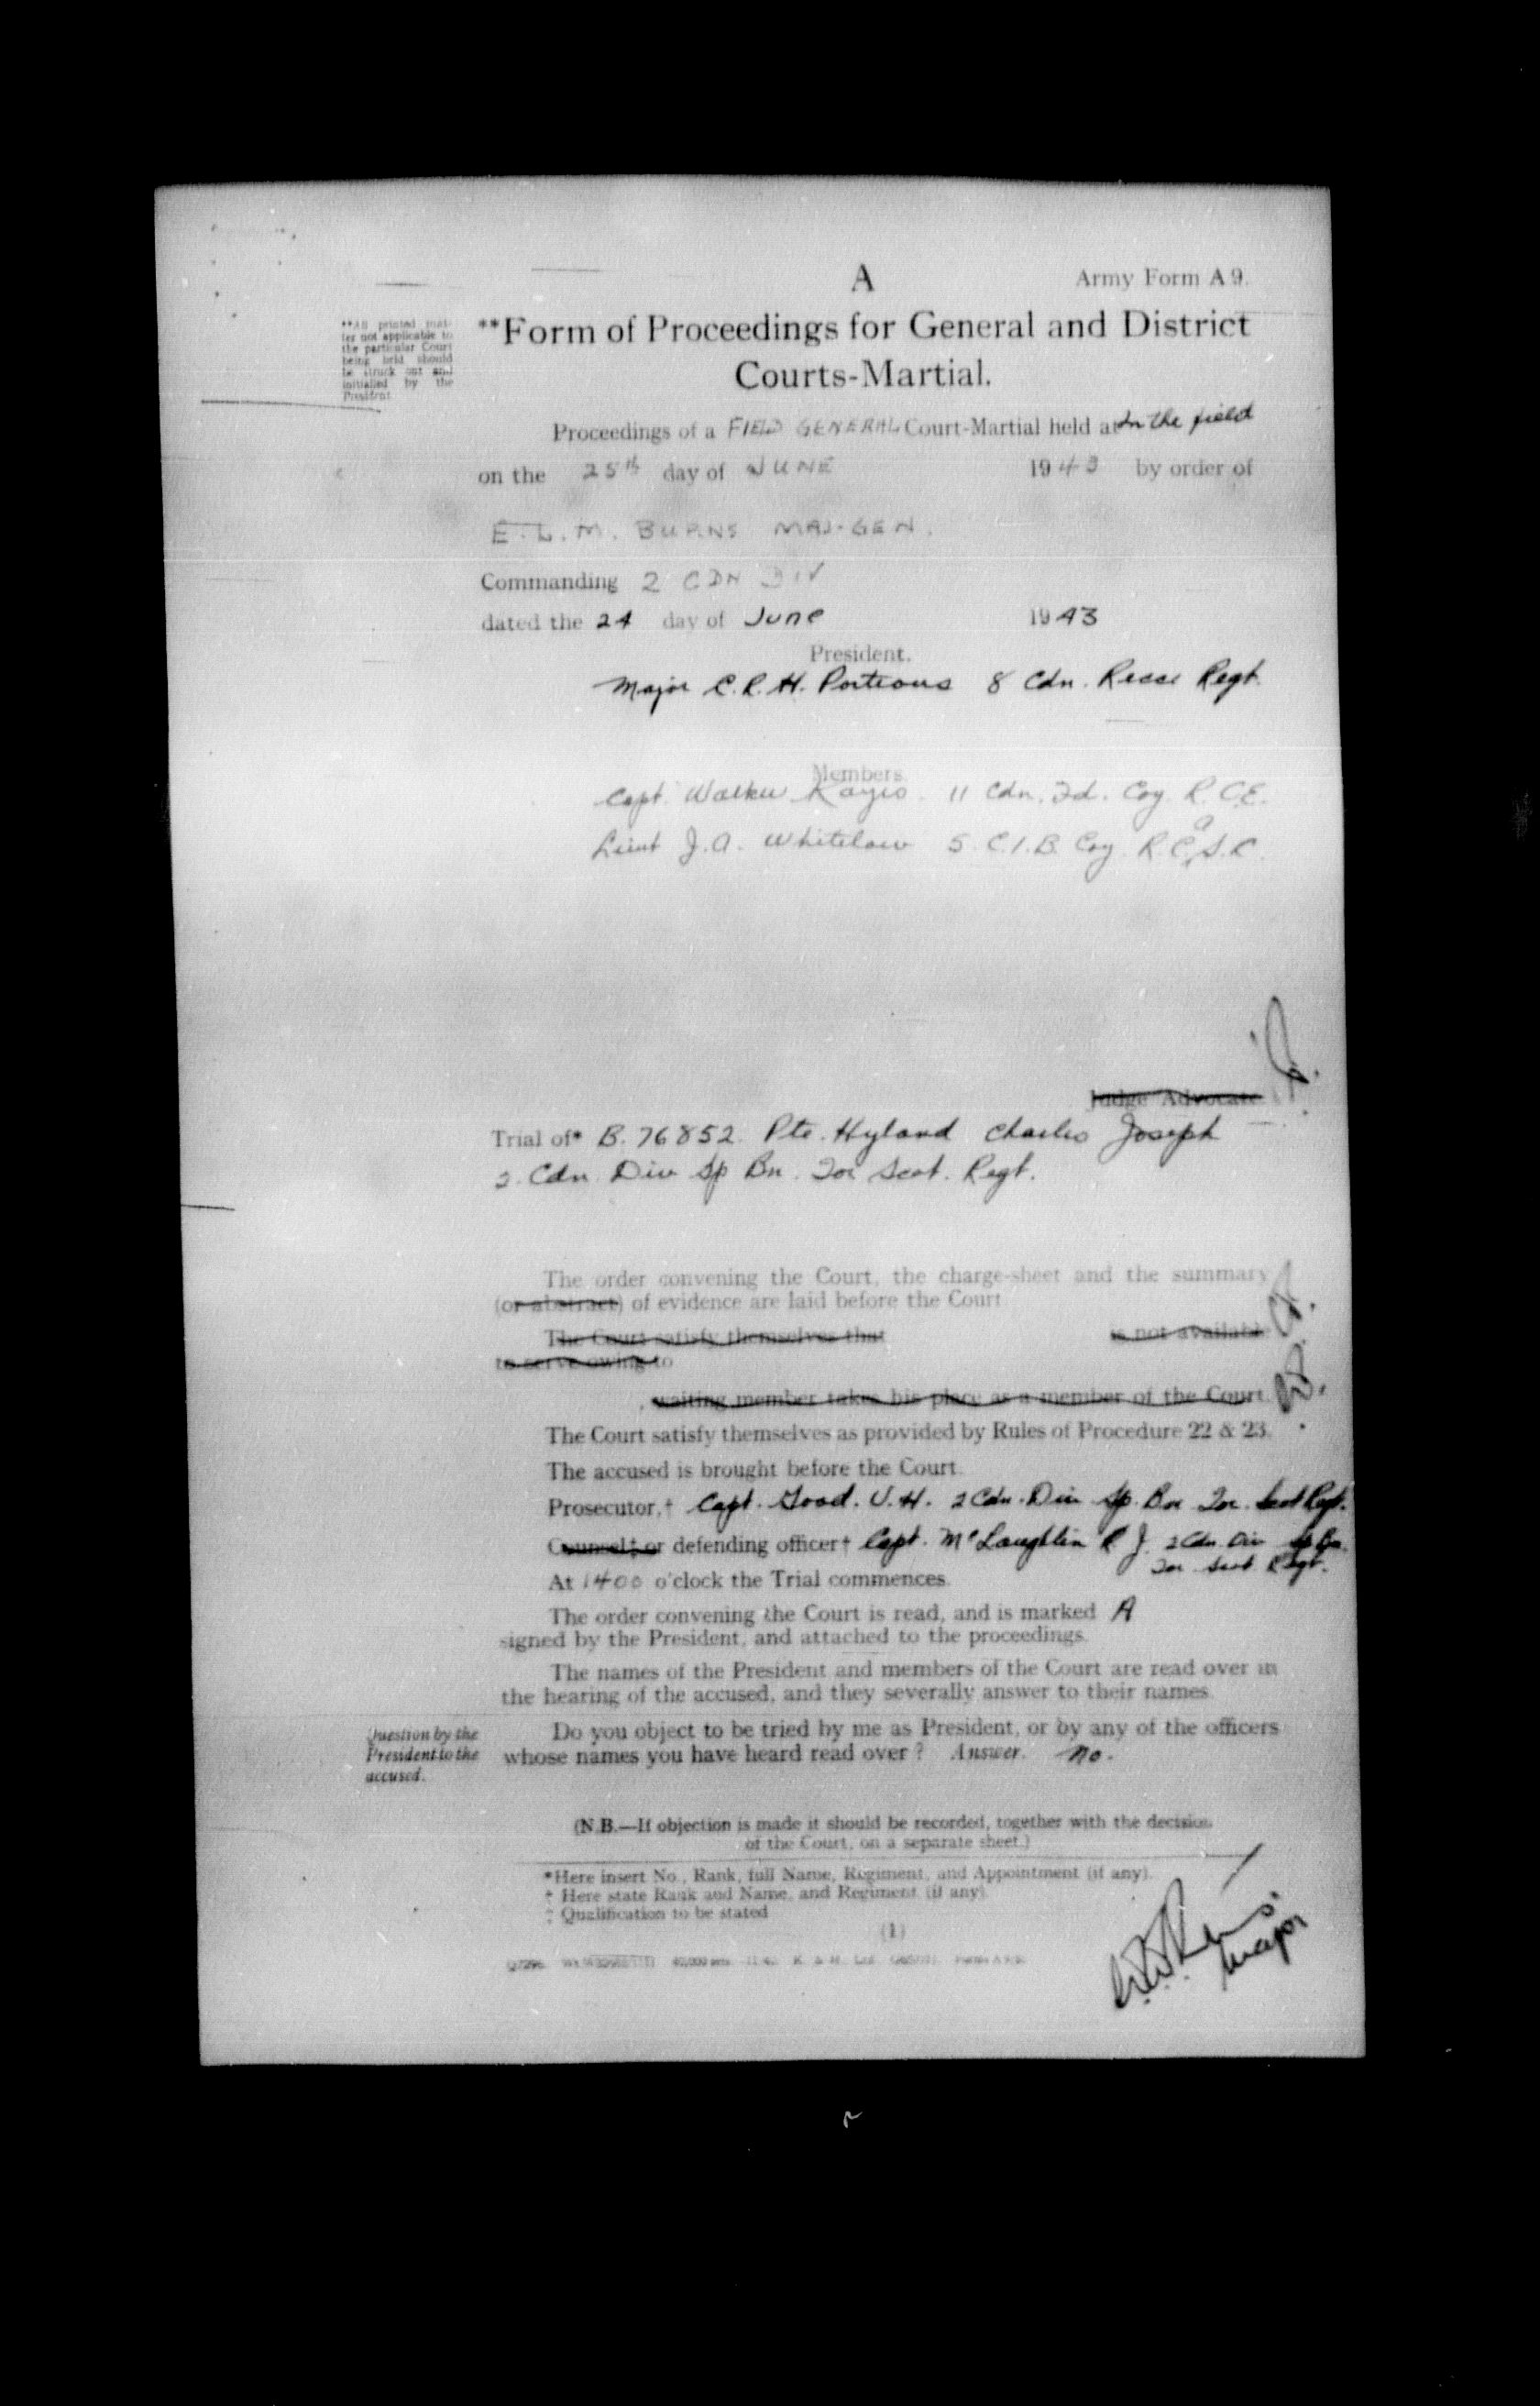 A
Army Form A 9.
**All printed mat-
ter not applicable to
the particular Court
being held should
be struck out and
initialled by the
President
**Form of Proceedings for General and District
Courts-Martial.
Proceedings of a FIELD GENERAL Court-Martial held at In the field
on the 25th day of JUNE 1943 by order of
E.L.M. BURNS MAJ-GEN.
Commanding 2 CDN DIV
dated the 24 day of June 1943
President.
Major C.R.H. Porteous 8 Cdn. Recce Regt.
Members.
Capt. Walker 11 Cdn. Fd. Coy. R.C.E.
Lieut J.A. Whitelaw 5 C.I.B. Coy. R.C.A.S.C.
Judge Advocate
Trial of* B. 76852. Pte. Hyland Charles Joseph
2. Cdn. Div Sp Bn. Tor Scot. Regt.
The order convening the Court, the charge-sheet and the summary
(or abstract) of evidence are laid before the Court
The Court satisfy themselves that is not available
to serve owing to
, waiting member takes his place as a member of the Court.
The Court satisfy themselves as provided by Rules of Procedure 22 & 23.
The accused is brought before the Court.
Prosecutor,† Capt. Good. V.H. 2 Cdn. Div Sp. Bn Tor. Scot Regt.
Counsel‡ or defending officer† Capt. McLaughlin R J. 2 Cdn Div Sp Bn.
Tor. Scot Regt.
At 1400 o'clock the Trial commences.
The order convening the Court is read, and is marked A
signed by the President, and attached to the proceedings.
The names of the President and members of the Court are read over in
the hearing of the accused, and they severally answer to their names.
Question by the
President to the
accused.
Do you object to be tried by me as President, or by any of the officers
whose names you have heard read over ? Answer. No.
(N.B.—If objection is made it should be recorded, together with the decision
of the Court, on a separate sheet.)
*Here insert No., Rank, full Name, Regiment, and Appointment (if any).
† Here state Rank and Name, and Regiment (if any).
‡ Qualification to be stated
(1)
Major